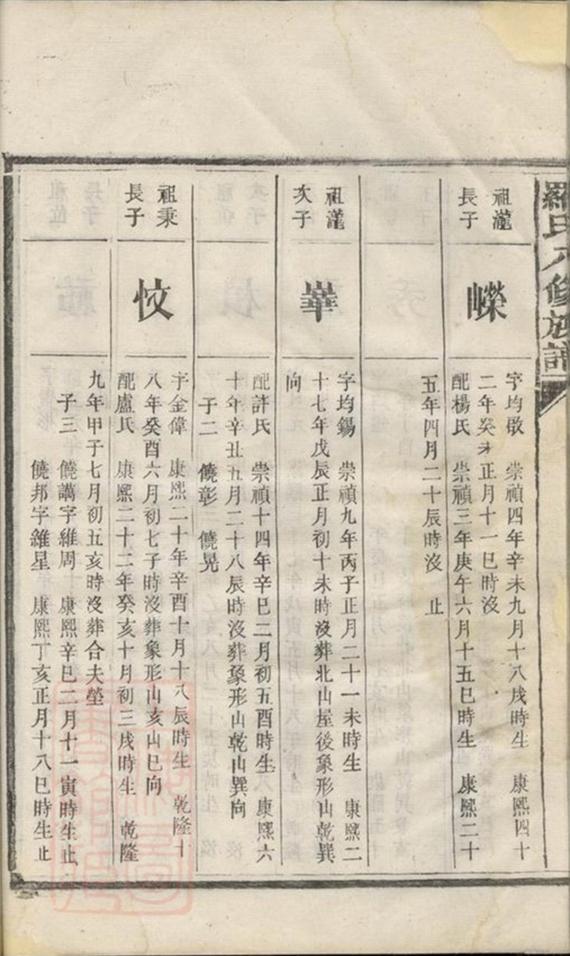 羅氏修族譜
祖瀧
長子
嶸
字均敬 崇禎四年辛未九月十八戌時生 康熙四十
二年癸未正月十一巳時沒
配楊氏 崇禎三年庚午六月十五巳時生 康熙二十
五年四月二十辰時沒 止
祖瀧
次子
崋
字均錫 崇禎九年丙子正月二十一未時生 康熙二
十七年戊辰正月初十未時沒葬北山屋後象形山乾巽
向
配許氏 崇禎十四年辛巳二月初五酉時生 康熙六
十年辛丑五月二十八辰時沒葬象形山乾山巽向
子二 饒彰 饒晃
祖秉
長子
忟
字金偉 康熙二十年辛酉十月十八辰時生 乾隆十
八年癸酉六月初七子時沒葬象形山亥山巳向
配盧氏 康熙二十二年癸亥十月初三戌時生 乾隆
九年甲子七月初五亥時沒葬合夫塋
子三 饒講字維周 康熙辛巳二月十一寅時生止
饒邦字維星 康熙丁亥正月十八巳時生止